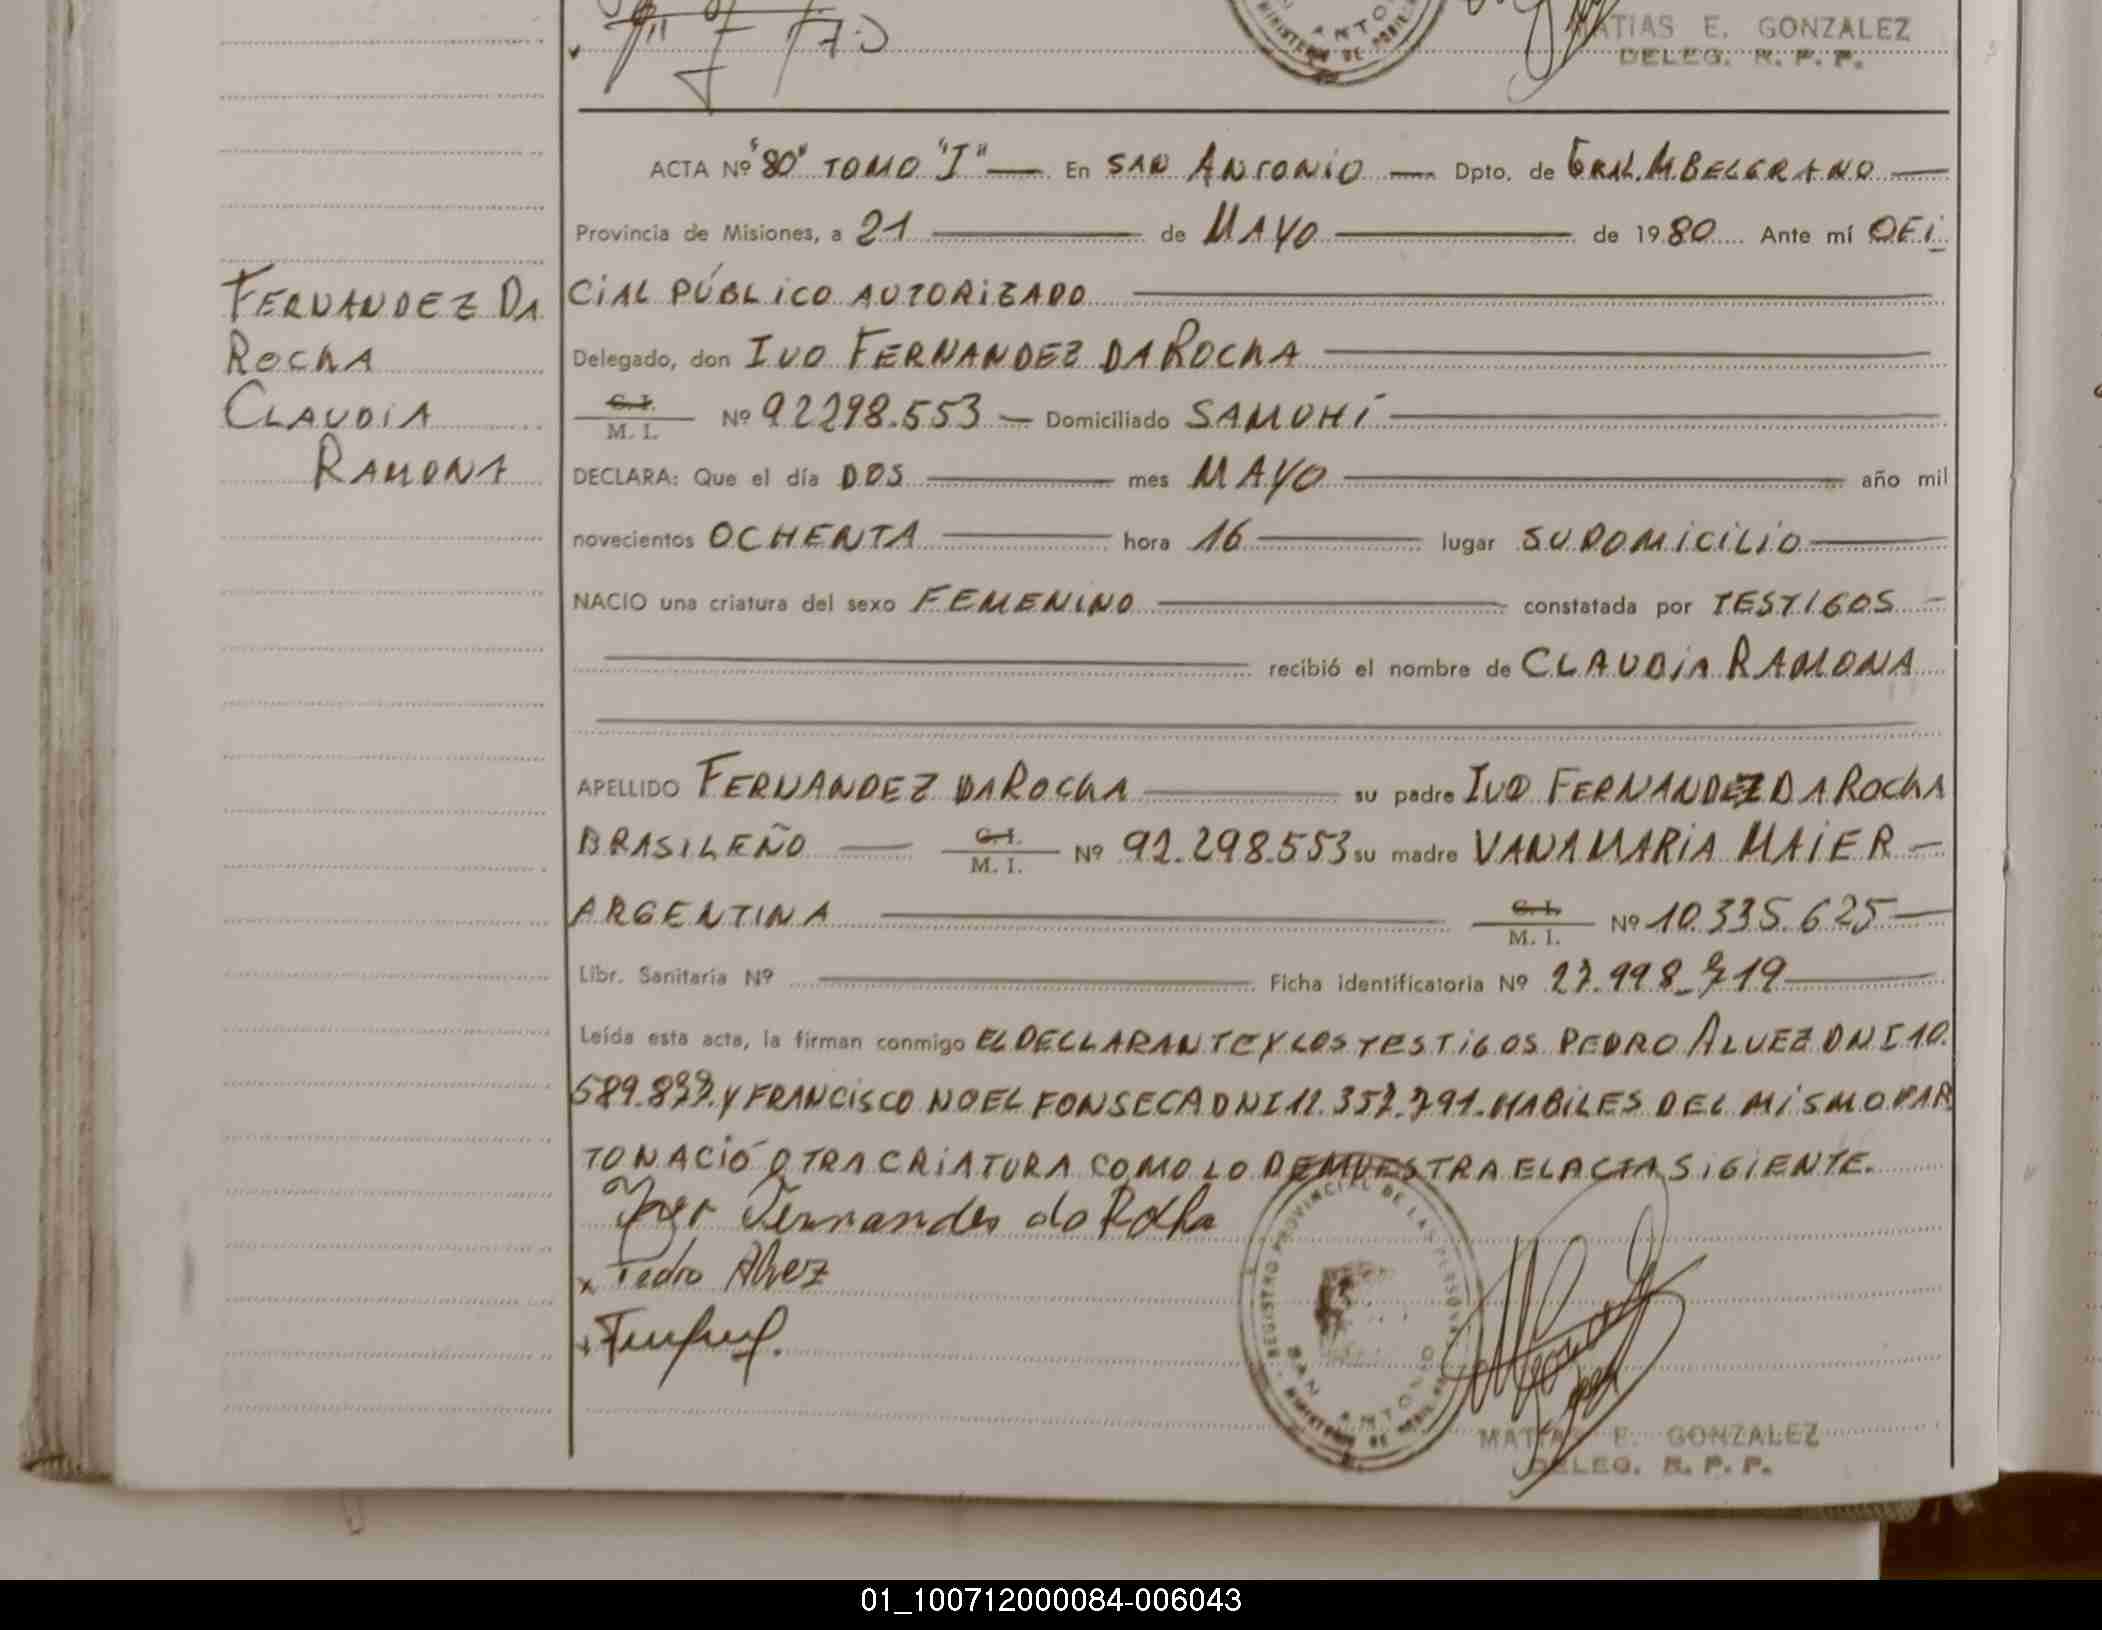 MATIAS E. GONZALEZ
DELEG. R. P. P.
ACTA Nº "80" TOMO "I" — En SAN ANTONIO — Dpto. de GRAL. M. BELGRANO —
Provincia de Misiones, a 21 — de MAYO — de 1980 Ante mí OFI
CIAL PÚBLICO AUTORIZADO —
FERNANDEZ DA
ROCHA
CLAUDIA
RAMONA
Delegado, don IVO FERNANDEZ DA ROCHA —
C. I. M. I. Nº 92298.553 — Domiciliado SAMUHÍ —
DECLARA: Que el día DOS — mes MAYO — año mil
novecientos OCHENTA — hora 16 — lugar SU DOMICILIO —
NACIO una criatura del sexo FEMENINO — constatada por TESTIGOS —
— recibió el nombre de CLAUDIA RAMONA
APELLIDO FERNANDEZ DA ROCHA — su padre IVO FERNANDEZ DA ROCHA
BRASILEÑO — C. I. M. I. Nº 92.298.553 su madre VANA MARIA MAIER —
ARGENTINA — C. I. M. I. Nº 10.335.625 —
Libr. Sanitaria Nº — Ficha identificatoria Nº 27.998.719 —
Leída esta acta, la firman conmigo EL DECLARANTE Y LOS TESTIGOS PEDRO ALVEZ DNI 10.
589.839. Y FRANCISCO NOEL FONSECA DNI 11.357.791. HABILES DEL MISMO PAR
TO NACIÓ OTRA CRIATURA COMO LO DEMUESTRA EL ACTA SIGIENTE.
Ivo Fernandes da Rocha
x Pedro Alvez
REGISTRO PROVINCIAL DE LAS PERSONAS
SAN ANTONIO
MATIAS E. GONZALEZ
DELEG. R. P. P.
01_100712000084-006043